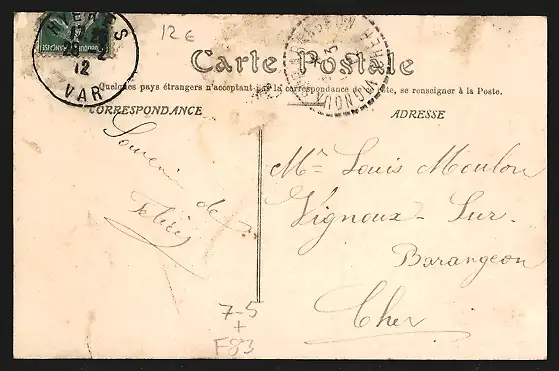 12€
HYERES
12
VAR
Carte Postale
Quelques pays étrangers n'acceptant pas la correspondance
se renseigner à la Poste.
CORRESPONDANCE
ADRESSE
Souvenir
de
Mr Louis Moulon
Vignoux-Sur-
Barangeon
Cher
7-5
+
F83